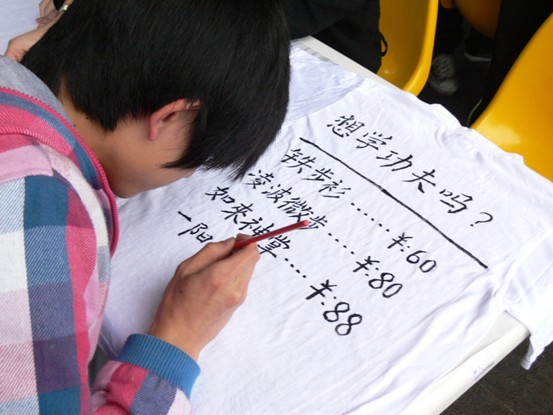 想学功夫吗？
铁步衫……￥:60
凌波微步……￥:80
如來神掌……￥:88
一阳